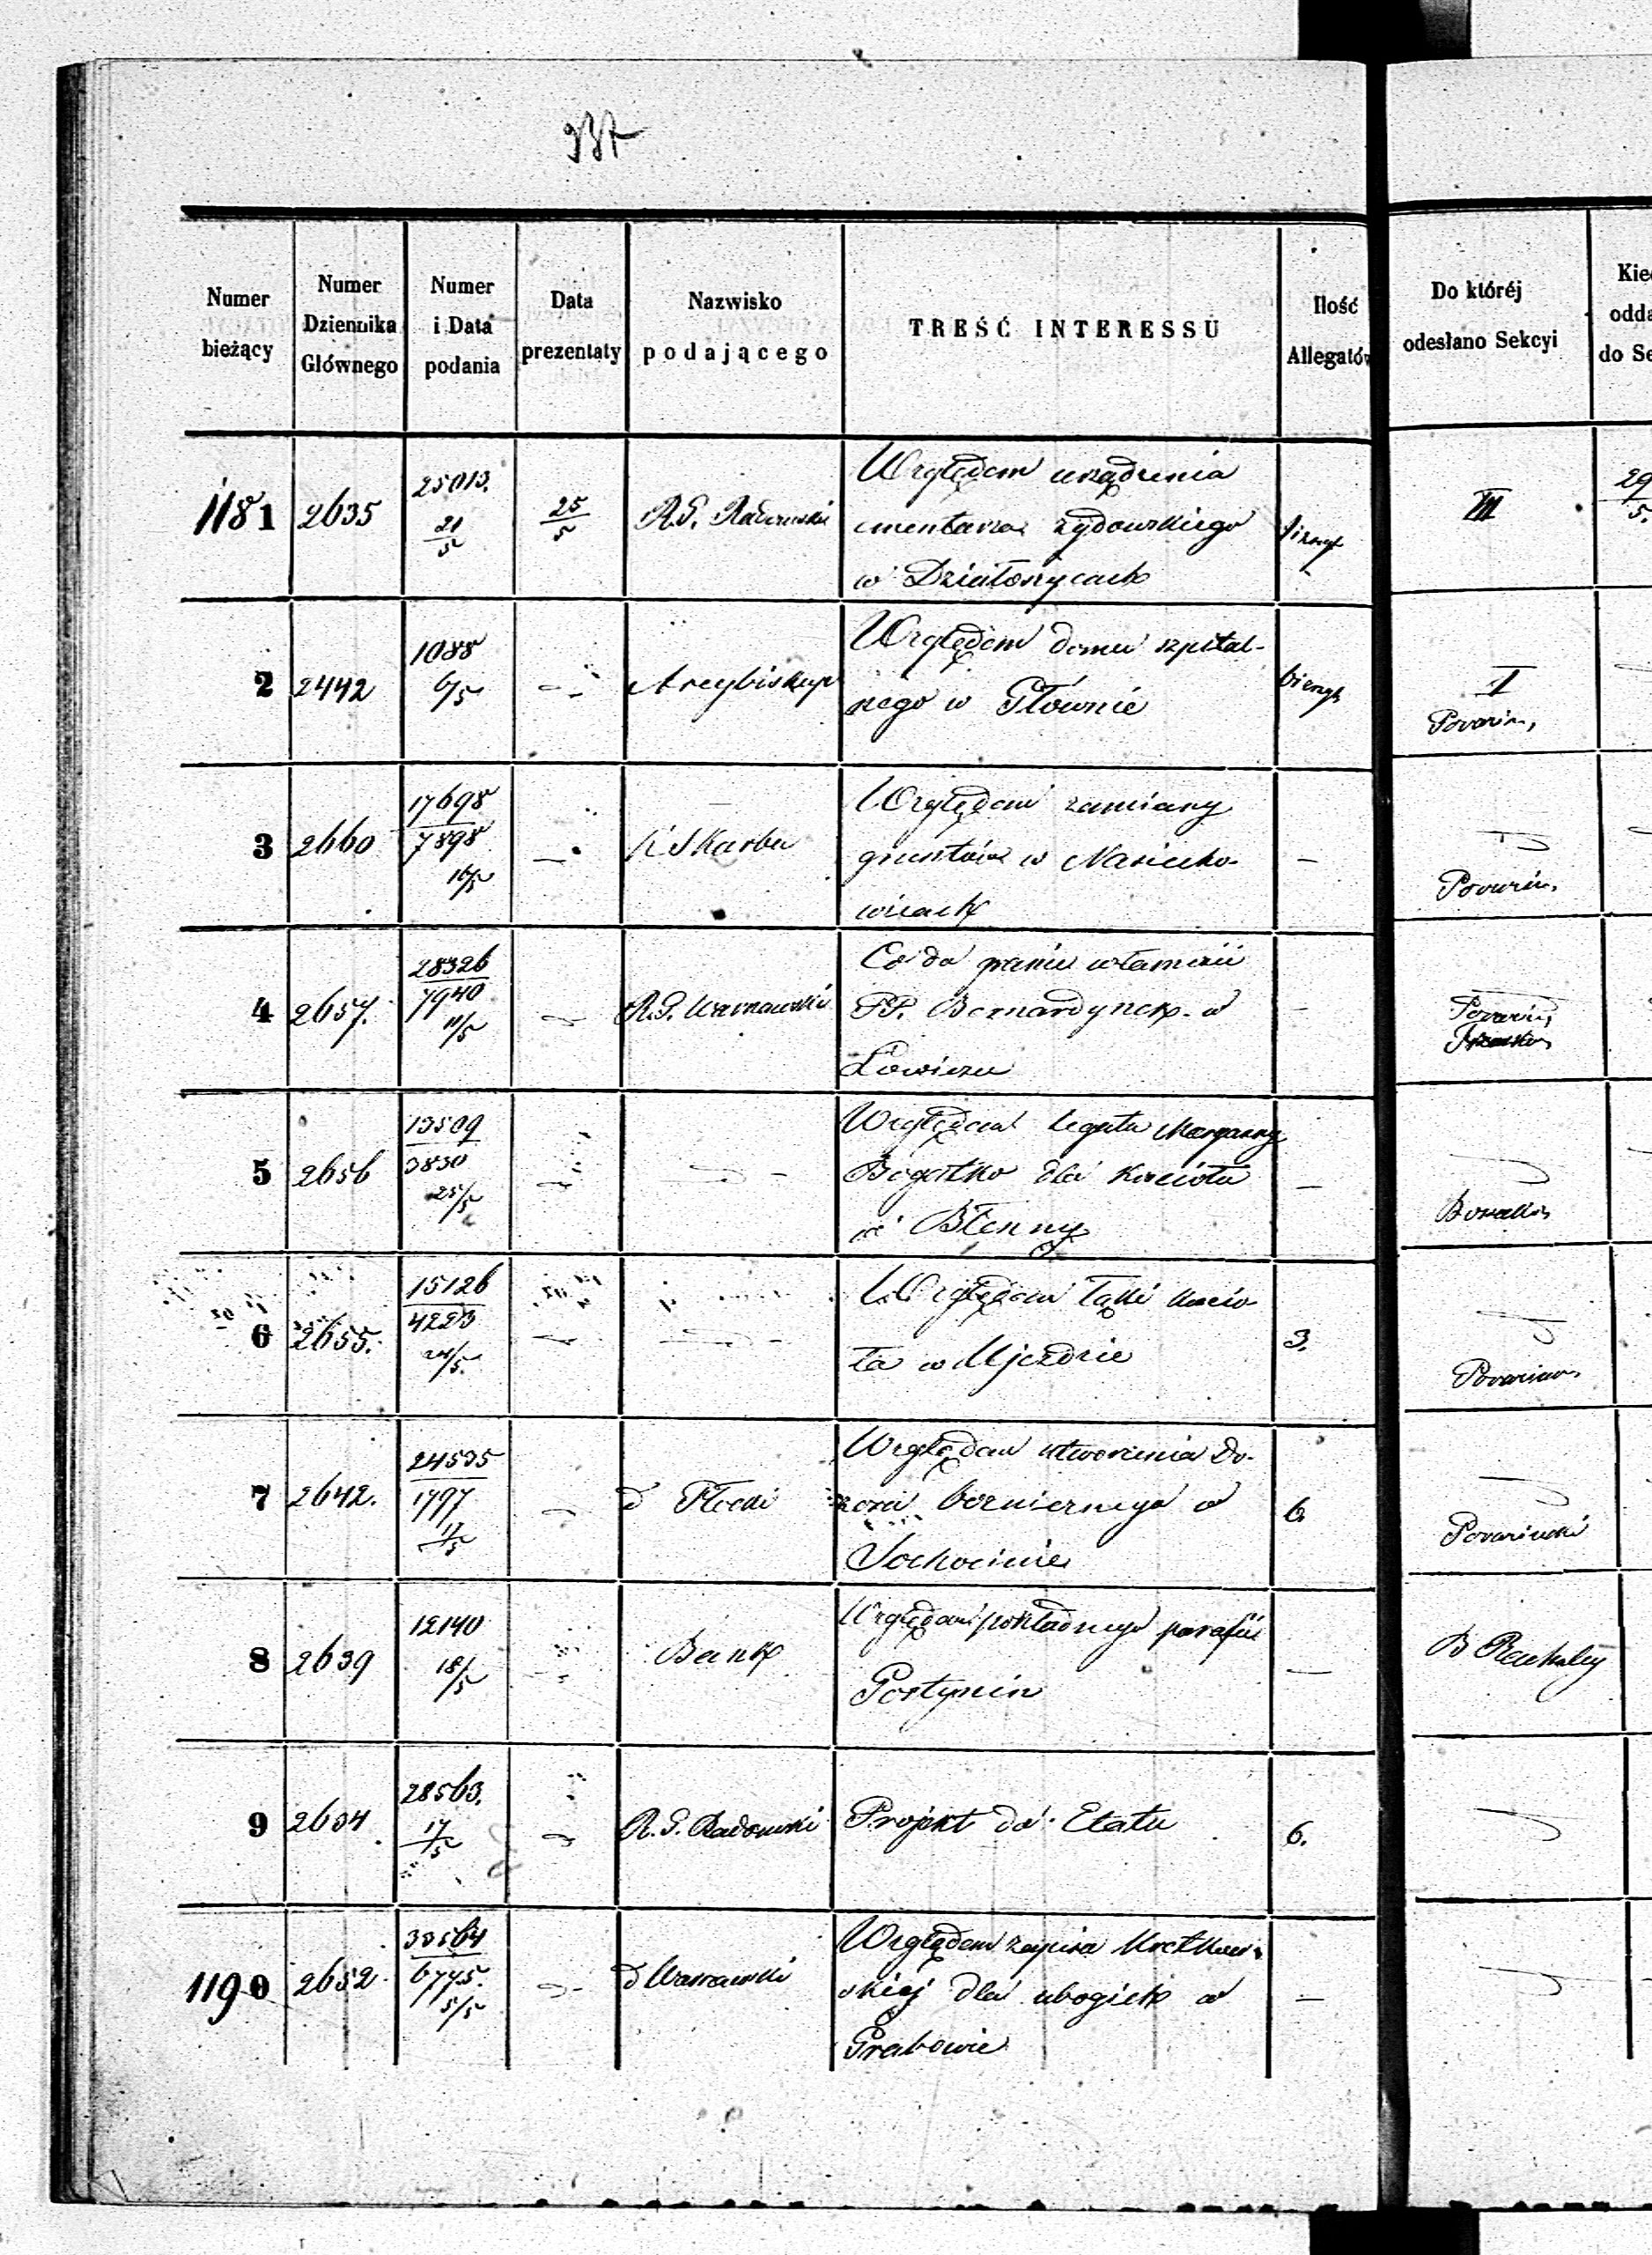 937
Numer bieżący
Numer Dziennika Głównego
Numer i Data podania
Data prezentaty
Nazwisko podającego
TREŚĆ INTERESSU
Ilość Allegatów
Do któréj odesłano Sekcyi
Kie
odda
do Se
1181 2635 25013. 21/5 25/5 R.G. Radomski
Względem urządzenia
cmentarza żydowskiego
w Działoszycach
III 29/5.
2 2442 1088 6/5 Arcybiskup
Względem domu szpital-
nego w Głównie
I
3 2660 17698/7898 16/5 K Skarbu
Względem zamiany
gruntów w
wicach
–
4 2657. 28326/7940 11/5 R.G. Warszawski
Co do
PP. Bernardynek w
Łowiczu
–
5 2656 13509/3830 25/5
Względem legatu Maryanny
Bogatko dla Kościoła
w Błenny
–
6 2655. 15126/4223 24/5.
Względem łąki kościo-
ła w Ujeździe
3.
7 2642. 24535/1797 17/5 d Płocki
Względem utworzenia Do-
zoru bożniczego w
Sochocinie
6.
8 2639 12140 18/5 Bank
Względem pokładnego parafii
Gostynin
–
9 2634 28563. 17/5 R.G. Radomski
Projekt do Etatu
6.
1190 2652 33564/6775. 5/5 d Warszawski
Względem zapisu
skiej dla ubogich w
Grabowie
–